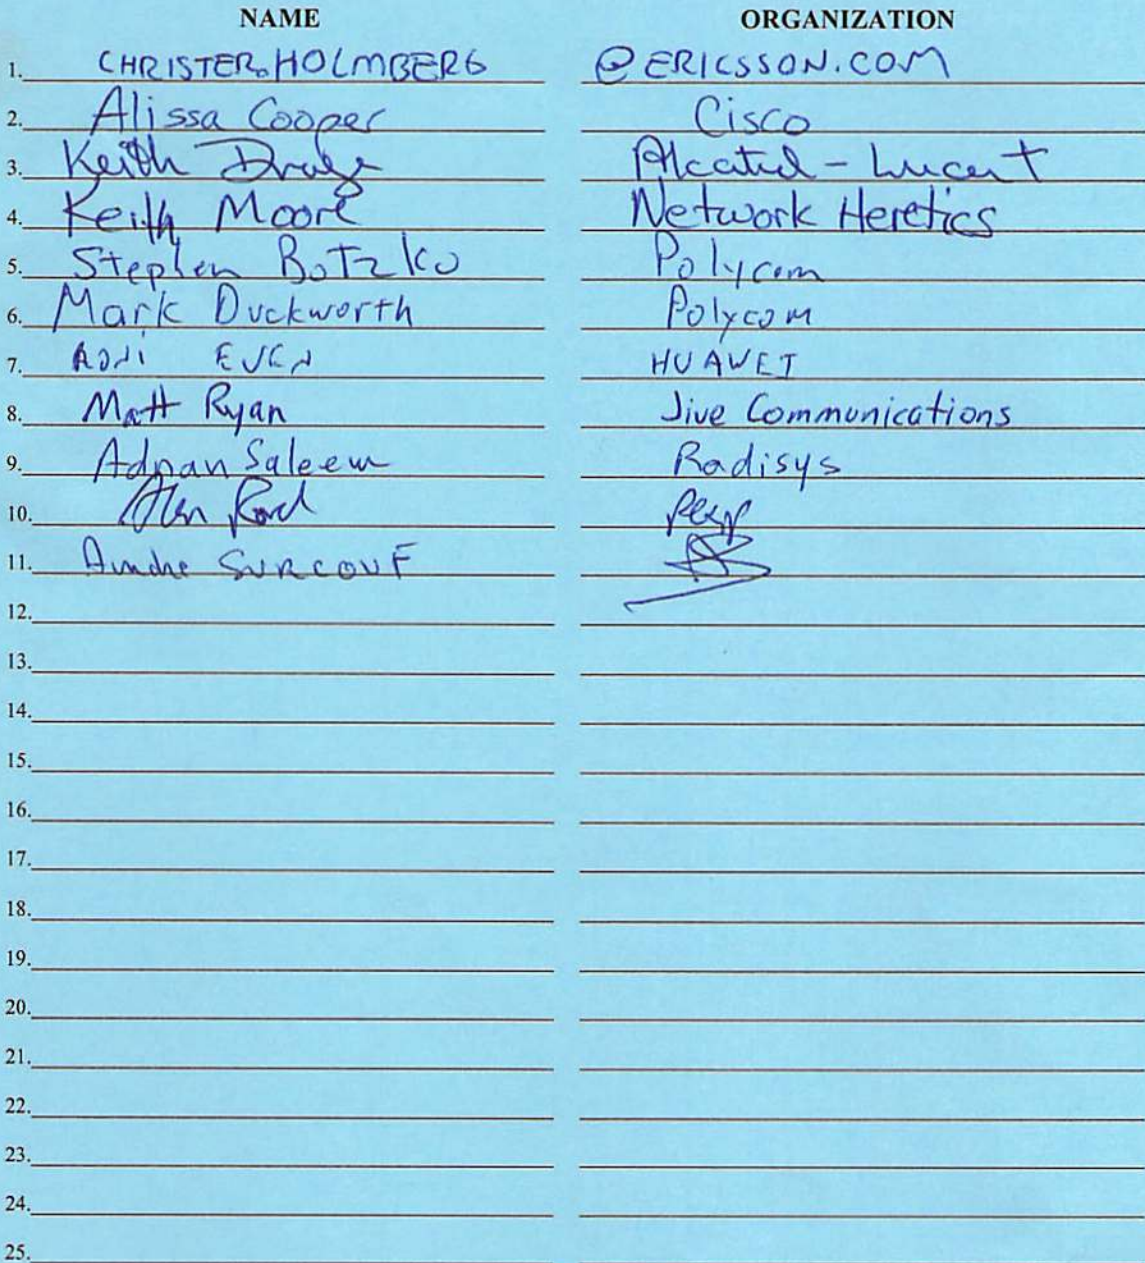 NAME ORGANIZATION
1. CHRISTER.HOLMBERG @ERICSSON.COM
2. Alissa Cooper Cisco
3. Keith Drage Alcatel-Lucent
4. Keith Moore Network Heretics
5. Stephen Botzko Polycom
6. Mark Duckworth Polycom
7. RONI EVEN HUAWEI
8. Matt Ryan Jive Communications
9. Adnan Saleem Radisys
10.
11. Andre SURCOUF
12.
13.
14.
15.
16.
17.
18.
19.
20.
21.
22.
23.
24.
25.